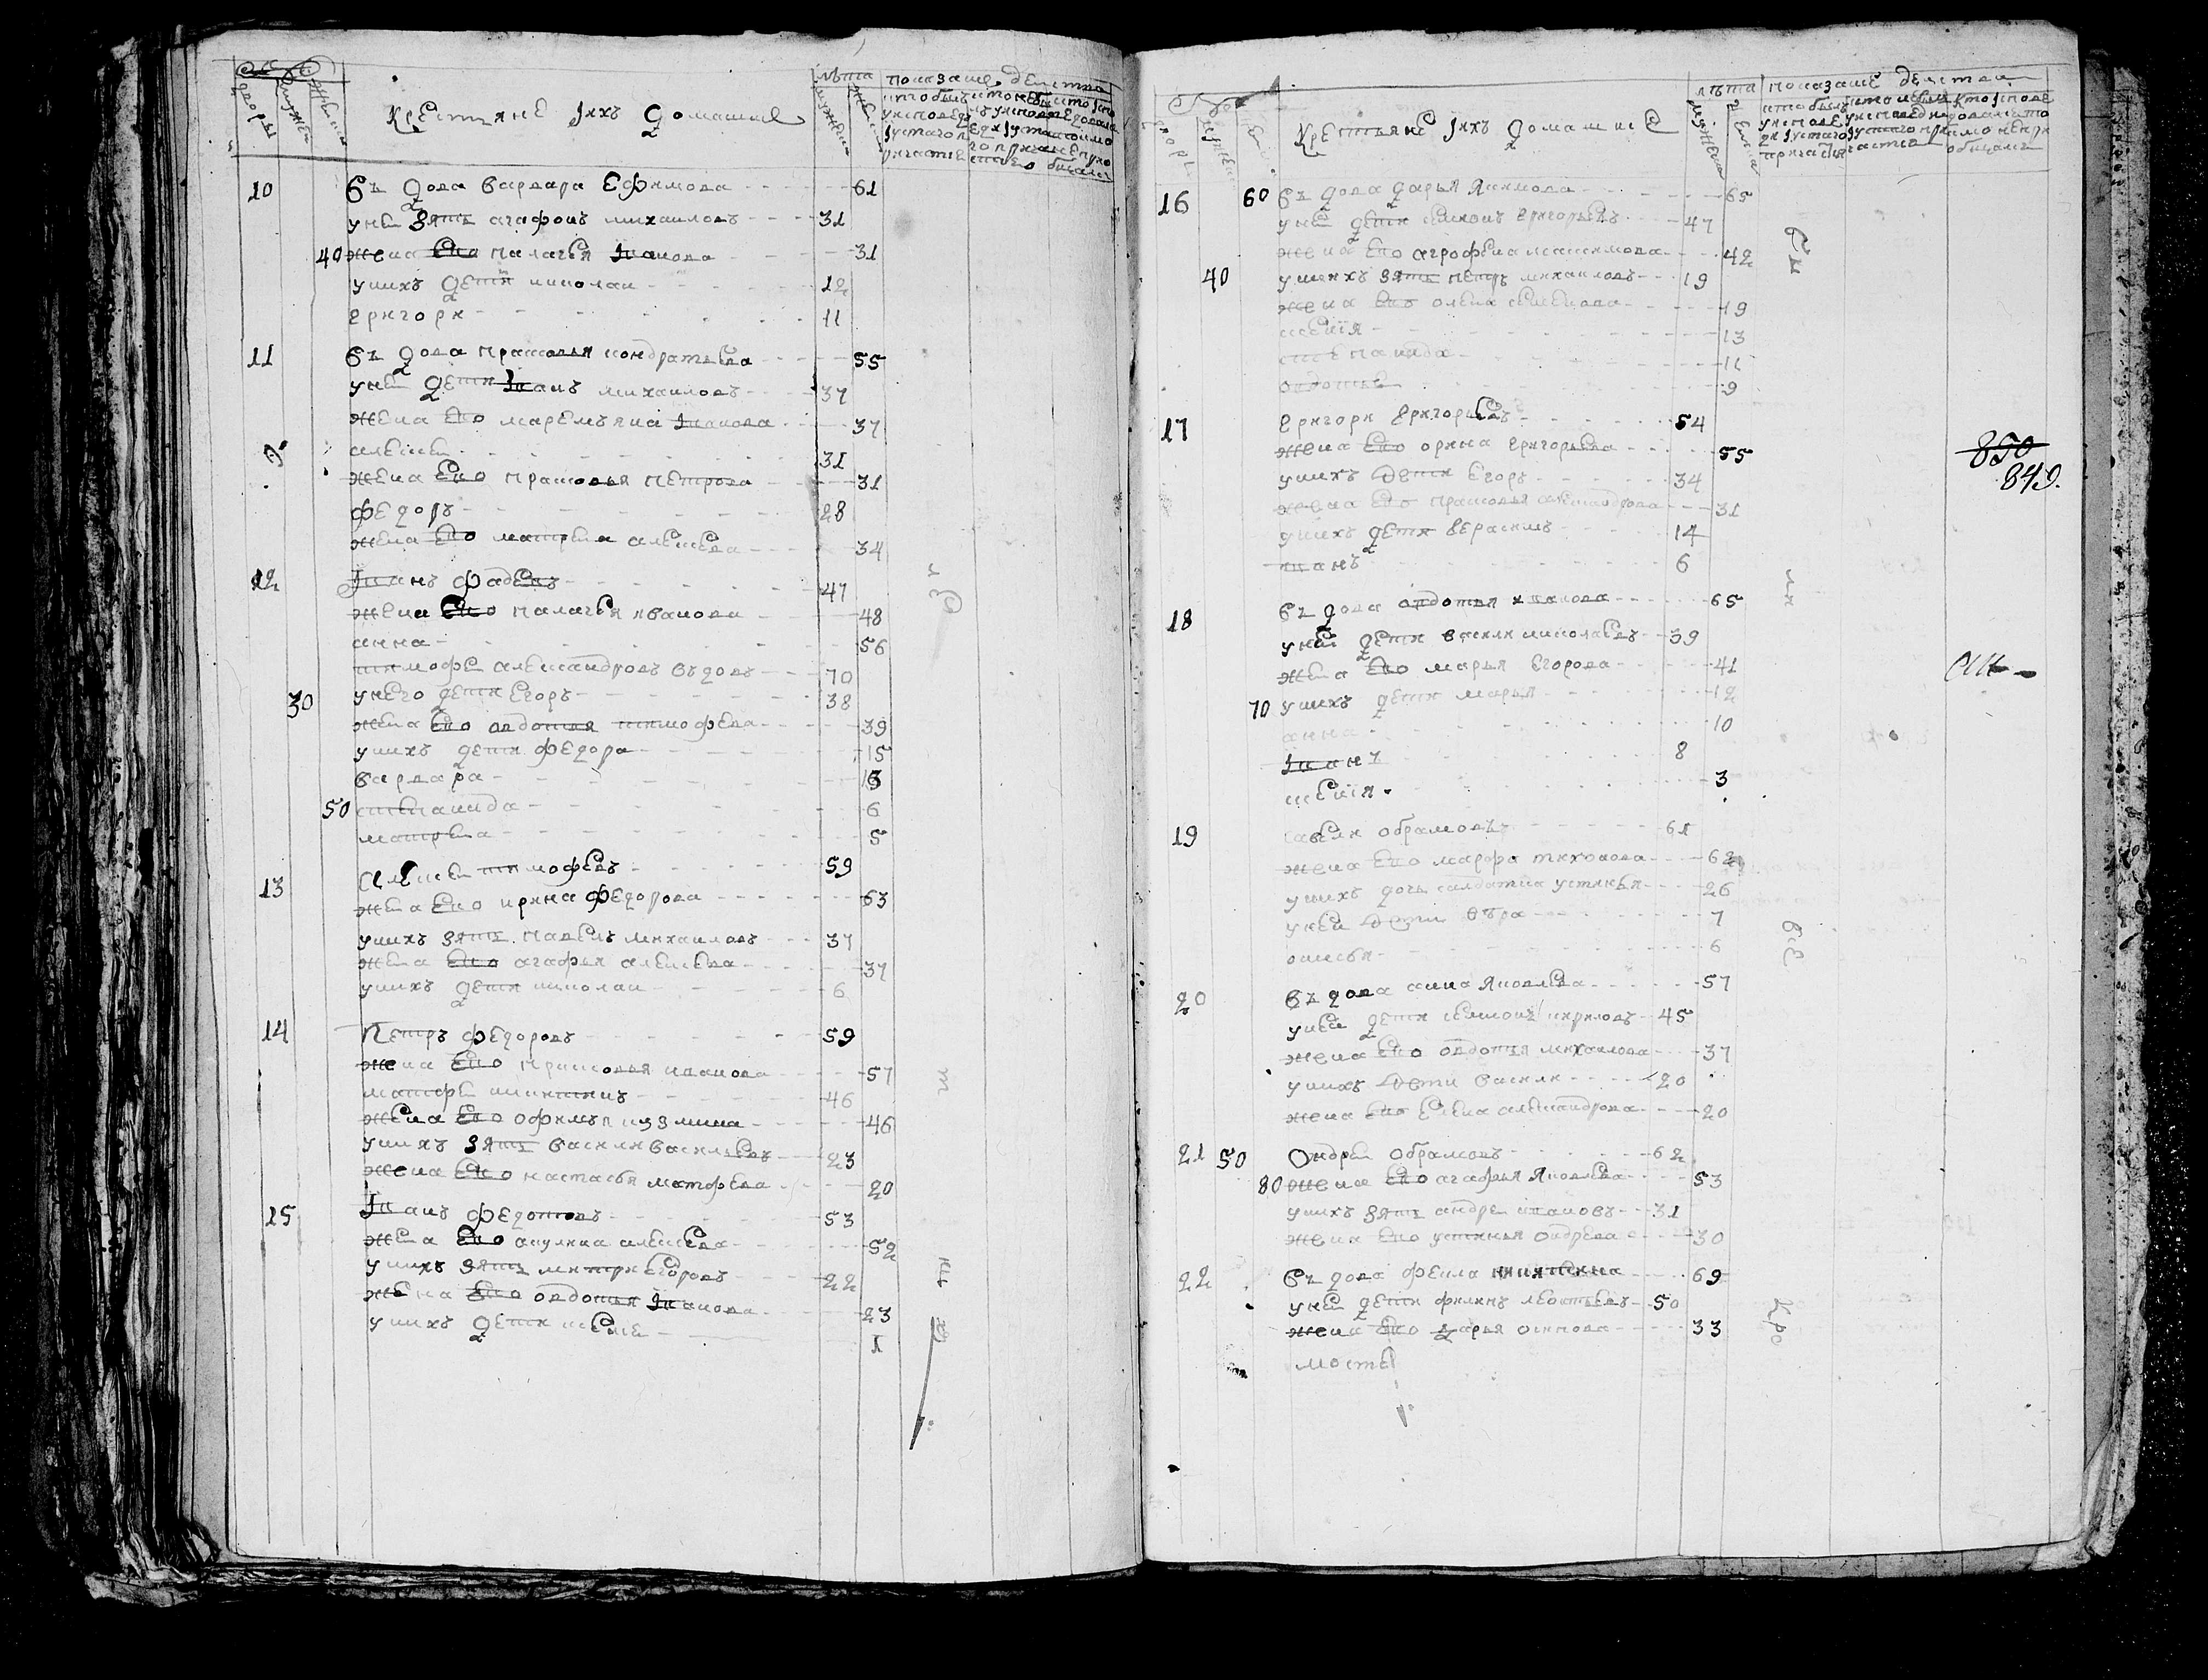 Крестьяне Iихъ Домашние
лѣта показание действа
10 въдова варвара Ефимова 61
у неи зять агафонъ михаиловъ 31
40 жена ево палагея Iванова 31
у нихъ дети николаи 12
григори 11
11 въдова прасковья кондратьева 55
у неи дети Iванъ михаиловъ 37
жена ево маремъяна Iванова 37
алексеи 31
жена ево прасковья петрова 31
федоръ 28
жена ево матрена алексеева 34
12 Iванъ фадеевъ 47
жена ево палагея иванова 48
анна 56
тимофеи александровъ въдовъ 70
30 у него дети Егоръ 38
жена ево овдотья тимофеева 39
у нихъ дети федора 15
варвара 13
50 степанида 6
матрена 5
13 Алексеи тимофеевъ 59
жена ево ирина федорова 63
у нихъ зять павелъ михаиловъ 37
жена ево агафья алексеева 37
у нихъ дети николаи 6
14 Петръ федоровъ 59
жена ево прасковья иванова 57
матфеи никитинъ 46
жена ево офимья кузмина 46
у нихъ зять василеи василевъ 23
жена ево настасья матфеева 20
15 Iванъ федотовъ 53
жена ево акулина алексеева 52
у нихъ зять митри егоровъ 22
жена ево овдотья Iванова 23
у нихъ дети 1
Крестьяне Iихъ Домашние
лѣта показание действа
16 60 въдова дарья Якимова 65
у неи дети семионъ григорьевъ 47
жена ево агрофена максимова 42
40 у нихъ зять петръ михаиловъ 19
жена ево олена семенова 19
ксения 13
степанида 11
овдотья 9
17 григори григорьевъ 54
жена ево орина григорьева 55
850
849.
у нихъ дети Егоръ 34
жена ево прасковья александрова 31
у нихъ дети герасимъ 14
иванъ 6
18 въдова овдотья иванова 65
у неи дети васили николаевъ 39
жена ево марья Егорова 41
70 у нихъ дети марья 12
анна 10
Iванъ 8
ксения 3
19 савели обрамовъ 61
жена ево марфа тихонова 62
у нихъ дочь салдатка устинья 26
у неи дети вѣра 7
6
20 въдова анна Яковлева 57
у неи дети семионъ кириловъ 45
жена ево овдотья михаилова 37
у нихъ дети васили 20
жена ево Елена александрова 20
21 50 Ондреи обрамовъ 62
80 жена ево агафья Яковлева 53
у нихъ зять андреи ивановъ 31
жена ево устинья ондреева 30
22 въдова фекла никитина 69
у неи дети филипъ леонтьевъ 50
жена ево дарья осипова 33
мосты